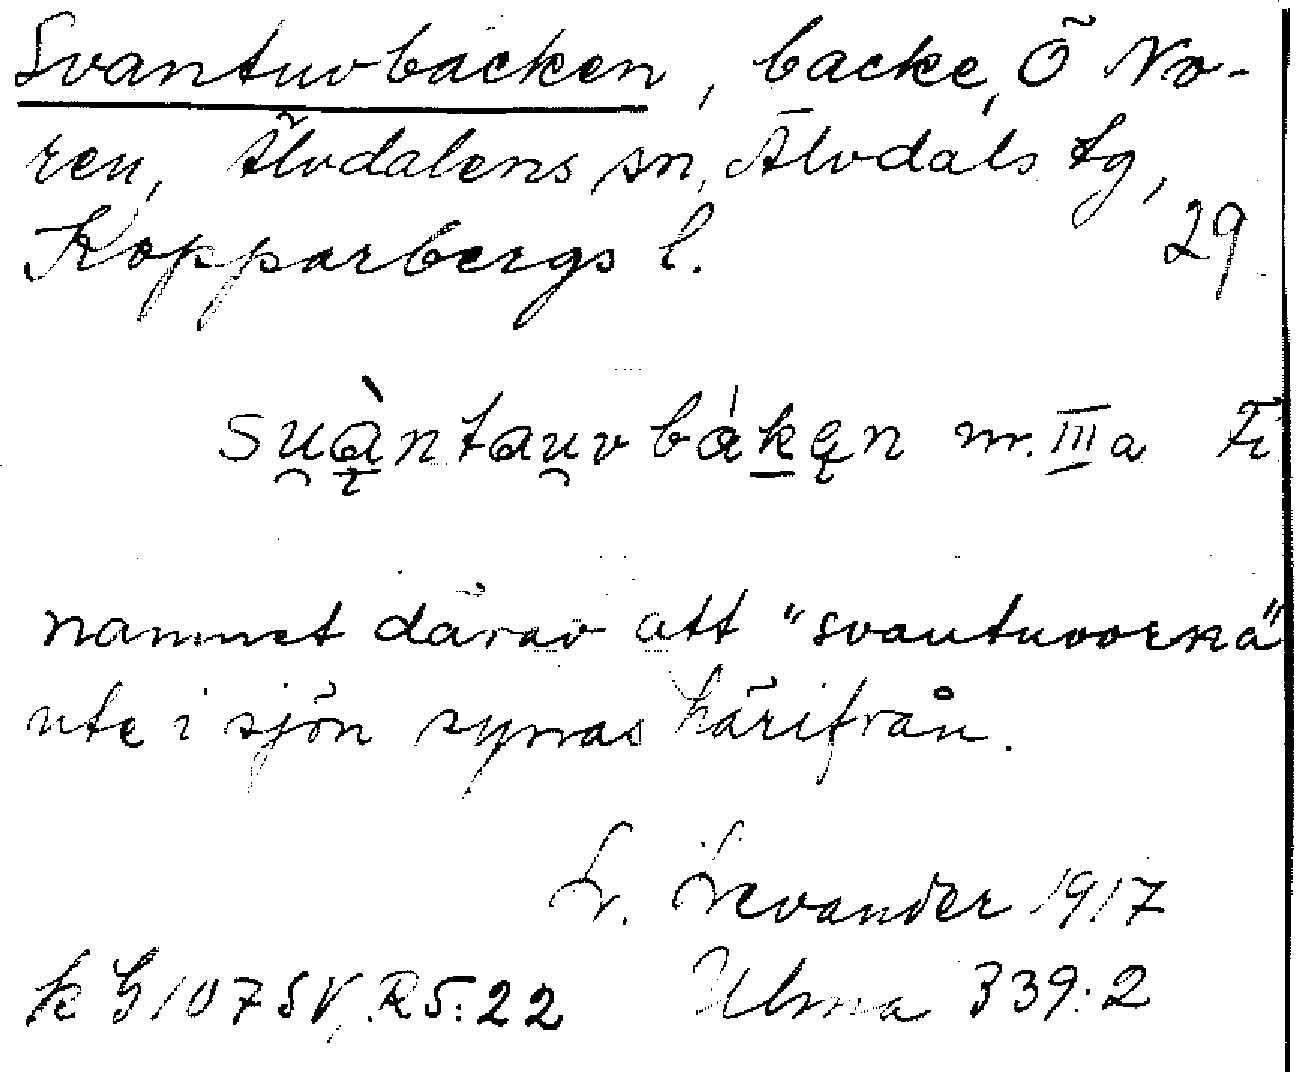 Svantuvbacken, backe, Ö No-
ren, Älvdalens sn, Älvdals tg,
Kopparbergs l. 29
suàntauvbákęn nr. III a Fi
namnet därav att "svantuvorna"
ute i sjön synas härifrån.
L. Levander 1917
k G 107 SV, R5:22 Ulma 339:2